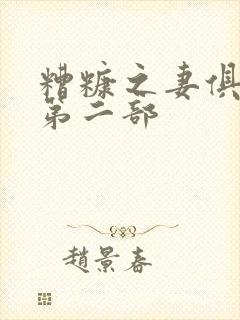 糟糠之妻俱
第二部
趙景春